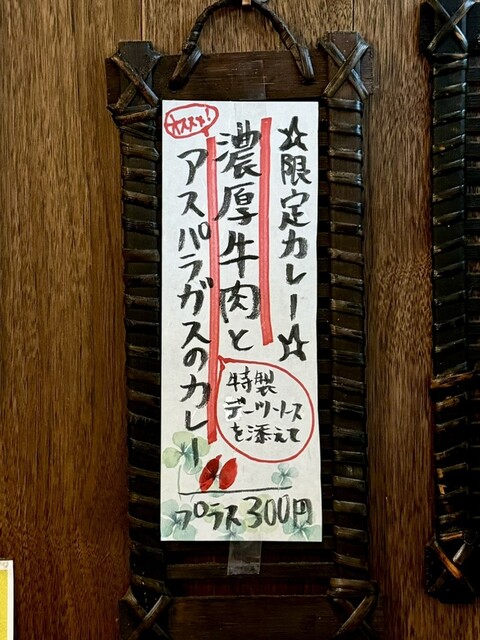 ☆限定カレー☆
オススメ!
濃厚牛肉と
アスパラガスのカレー
特製
デーツソース
を添えて
プラス300円